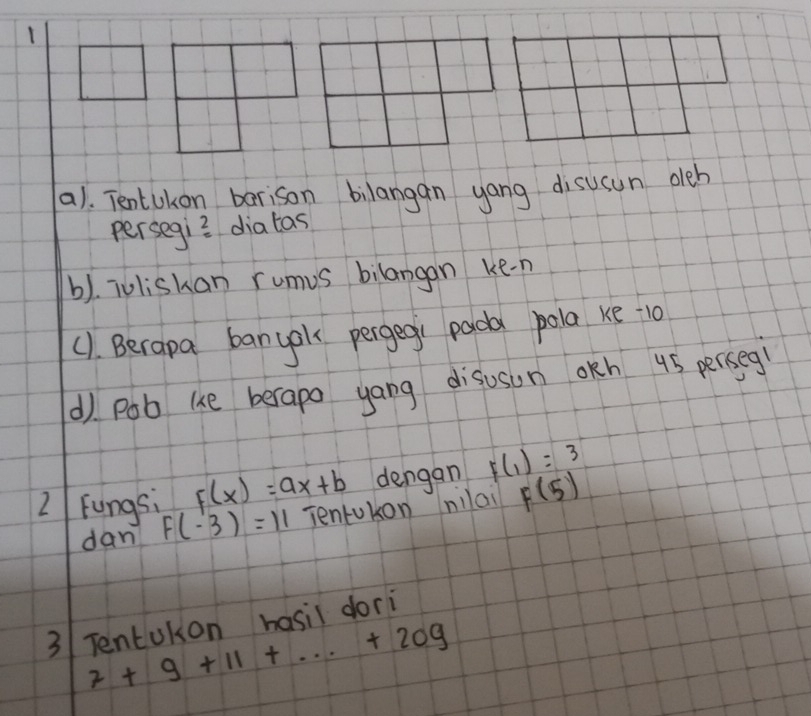 1
a). Tentukan barisan bilangan yang disusun oleh
persegi2 diatas
b). Tuliskan rumus bilangan ke-n
c). Berapa banyak pergegi pada pola ke -10
d). Pola ke berapa yang disusun oleh 45 persegi
2 Fungsi f(x) = ax+b dengan f(1) = 3
dan F(-3) = 11 Tentukan nilai F(5)
3 Tentukan hasil dari
7 + 9 + 11 + ... + 209